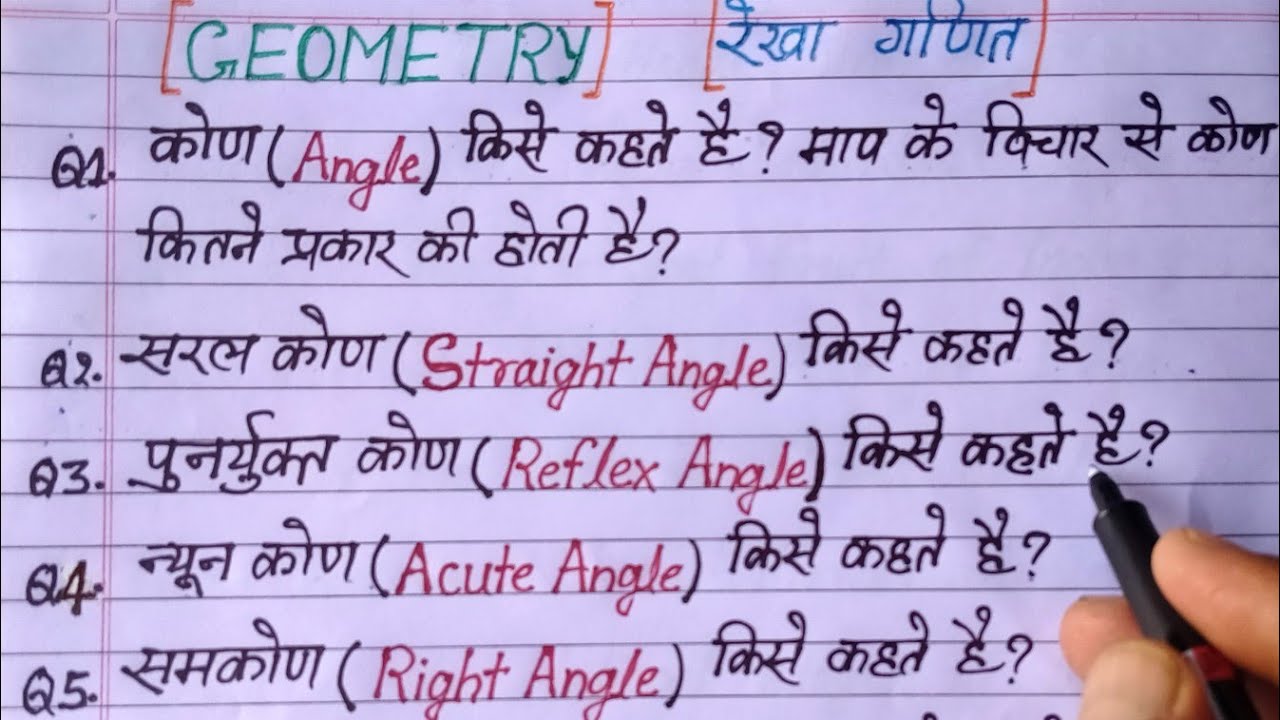 [GEOMETRY] [रेखा गणित]
Q1. कोण (Angle) किसे कहते है? माप के विचार से कोण
कितने प्रकार की होती है?
Q2. सरल कोण (Straight Angle) किसे कहते है?
Q3. पुनर्युक्त कोण (Reflex Angle) किसे कहते है?
Q4. न्यून कोण (Acute Angle) किसे कहते है?
Q5. समकोण (Right Angle) किसे कहते है?